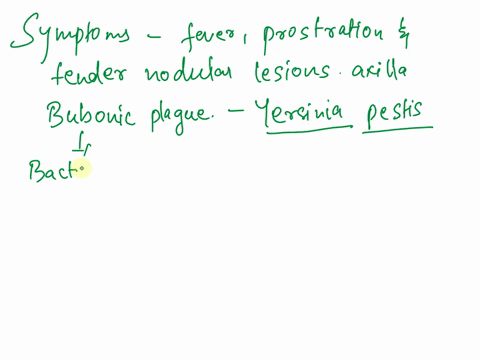 Symptoms - fever, prostration &
tender nodular lesions. axilla
Bubonic plague. - Yersinia pestis
Bact